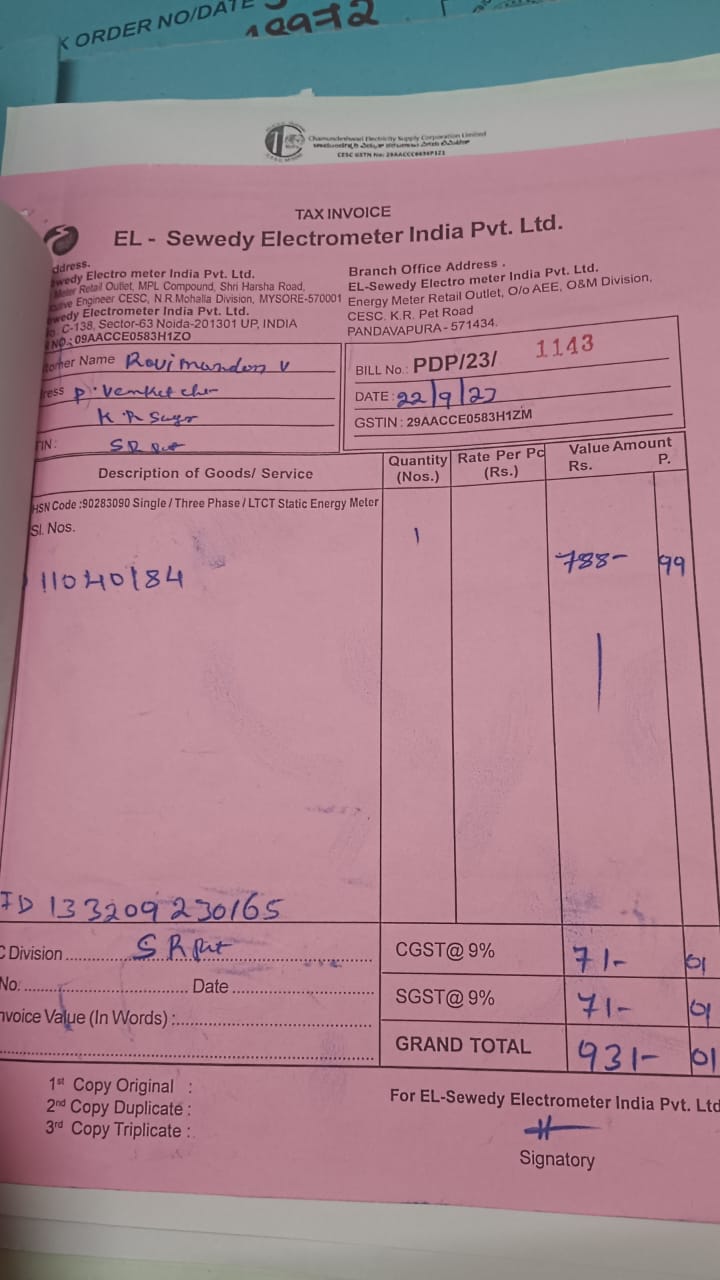 K ORDER NO/DATE
Chamundeshwari Electricity Supply Corporation Limited
CESC GSTN No: 29AACCC
TAX INVOICE
EL - Sewedy Electrometer India Pvt. Ltd.
ddress.
wedy Electro meter India Pvt. Ltd.
Meter Retail Outlet, MPL Compound, Shri Harsha Road,
utive Engineer CESC, N.R.Mohalla Division, MYSORE-570001
wedy Electrometer India Pvt. Ltd.
C-138, Sector-63 Noida-201301 UP, INDIA
NO.: 09AACCE0583H1ZO
Branch Office Address .
EL-Sewedy Electro meter India Pvt. Ltd.
Energy Meter Retail Outlet, O/o AEE, O&M Division,
CESC. K.R. Pet Road
PANDAVAPURA - 571434.
tomer Name
ress
K R
TIN :
BILL No.: PDP/23/ 1143
DATE : 22/9/23
GSTIN : 29AACCE0583H1ZM
Description of Goods/ Service
Quantity (Nos.)
Rate Per Pc (Rs.)
Value Amount
Rs. P.
HSN Code :90283090 Single / Three Phase / LTCT Static Energy Meter
Sl. Nos.
1
788- 99
11040184
ID 133209230165
C Division
CGST@ 9% 71- 01
No: Date
SGST@ 9% 71- 01
nvoice Value (In Words) :
GRAND TOTAL 931- 01
1st Copy Original :
2nd Copy Duplicate :
3rd Copy Triplicate :
For EL-Sewedy Electrometer India Pvt. Ltd
Signatory